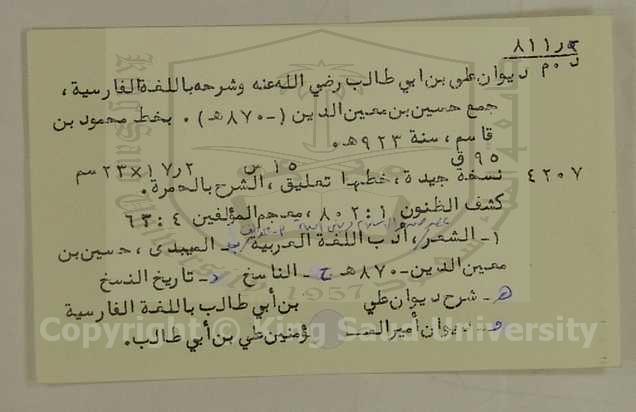 ٨١١ر
د.م ديوان علي بن ابي طالب رضي الله عنه وشرحه باللغة الفارسية،
جمع حسين بن معين الدين (-٨٧٠هـ). بخط محمود بن
قاسم، سنة ٩٢٣هـ.
٩٥ ق ١٥ س ١٧٫٢×٢٣ سم
٤٢٠٧ نسخة جيدة، خطها تعليق، الشرح بالحمرة.
كشف الظنون ١: ٨٠٢، معجم المؤلفين ٤: ٦٣
١- الشعر، أدب اللغة العربية الميبدى، حسين بن
معين الدين -٨٧٠هـ ج- الناسخ د- تاريخ النسخ
هـ- شرح ديوان علي بن أبي طالب باللغة الفارسية
و- ديوان أمير المؤمنين علي بن أبي طالب.
Copyright © King Saud University
1957